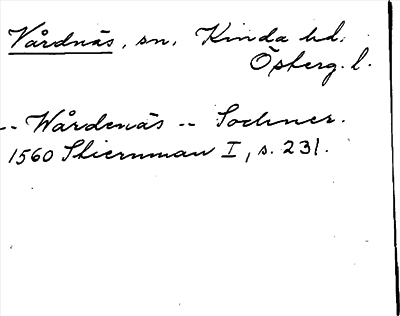 Vårdnäs, sn, Kinda hd.
Östberg. l.
-- Wårdenäs -- Sochner.
1560 Stiernman I, s. 231.